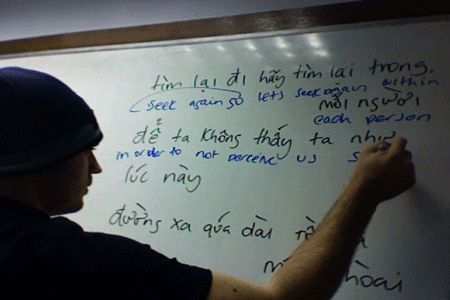 tìm lại đi hãy tìm lại trong.
seek again so lets seek again within
mỗi người
each person
để ta không thấy ta như
in order to not perceive us
lúc này
đường xa quá dài